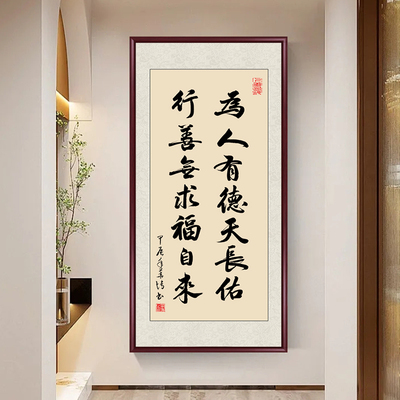 為人有德天長佑
行善無求福自來
甲辰年
書